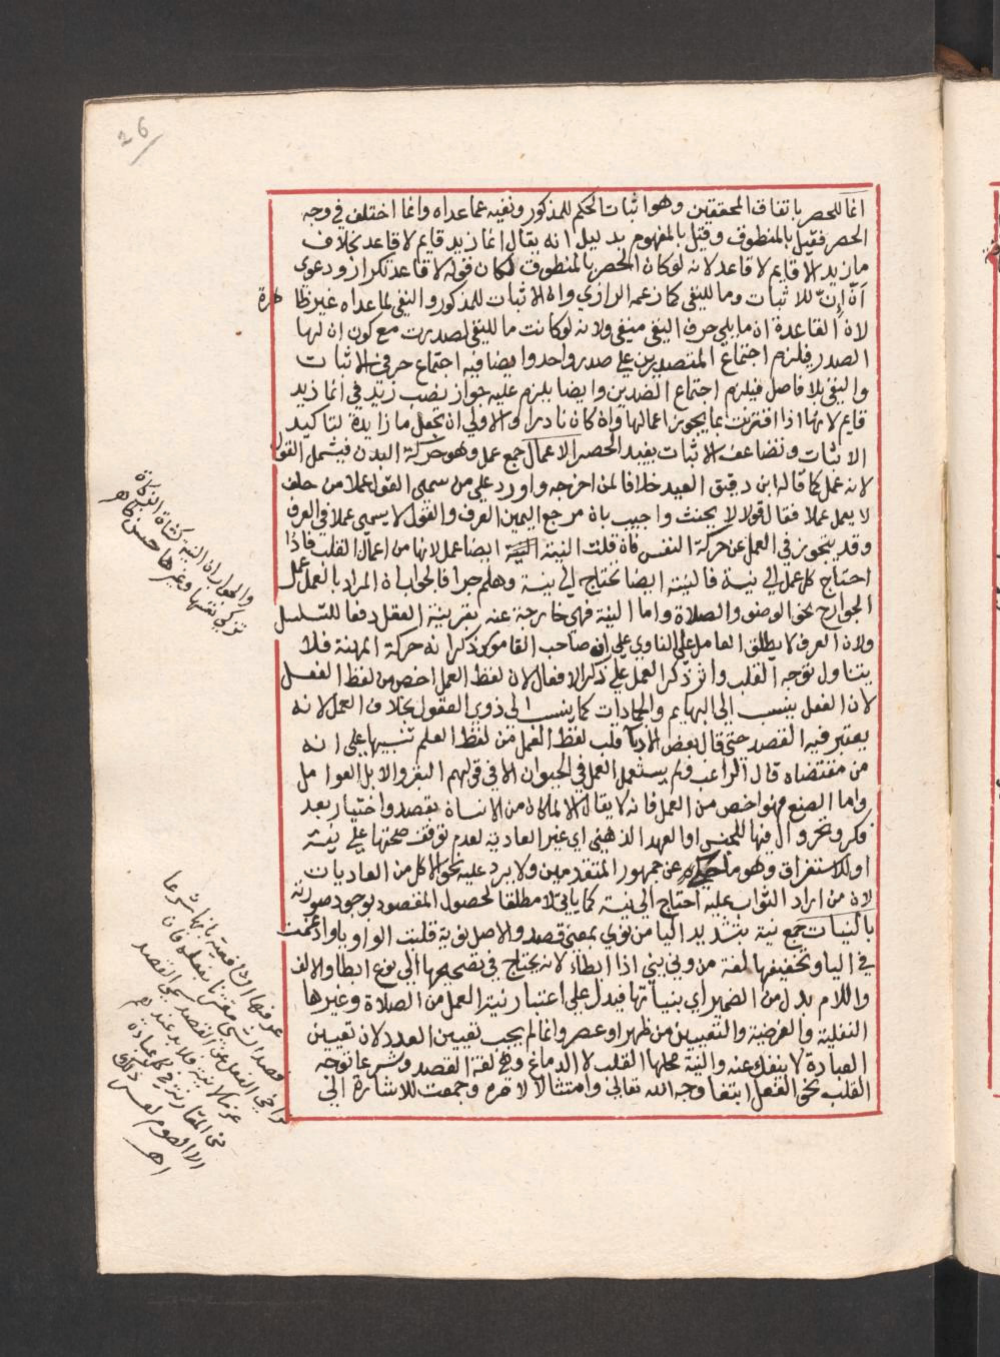 26
انما للحصر باتفاق المحققين وهو اثبات الحكم للمذكور ونفيه عما عداه وانما اختلف في وجه
الحصر فقيل بالمنطوق وقيل بالمفهوم بدليل انه يقال انما زيد قايم لا قاعد بخلاف
ما زيد الا قايم لا قاعد لانه لو كان الحصر بالمنطوق لكان قوله لا قاعد تكرار ودعوى
ان إنّ للاثبات وما للنفي كما زعمه الرازي وان الاثبات للمذكور والنفي لما عداه غير ظاهرة
لان القاعدة ان ما يلي حرف النفي منفي ولانه لو كانت ما للنفي لصدرت مع كون ان لها
الصدر فيلزم اجتماع المتصدرين على صدر واحد وايضا فيه اجتماع حرفي الاثبات
والنفي بلا فاصل فيلزم اجتماع الضدين وايضا يلزم عليه جواز نصب زيد في انما زيد
قايم لانها اذا اقترنت بما يجوز اعمالها وان كان نادرا والاولى ان تجعل ما زايدة لتاكيد
الاثبات وتضاعف الاثبات يفيد الحصر الاعمال جمع عمل وهو حركة البدن فيشمل القول
لانه عمل كما قاله ابن دقيق العيد خلافا لمن اخرجه واورد على من سمى القول عملا من حلف
لا يعمل عملا فقال قولا لا يحنث واجيب بان مرجع اليمين العرف والقول لا يسمى عملا في العرف
وقد يتجوز في العمل عن حركة النفس فان قلت النية ايضا عمل لانها من اعمال القلب فاذا
احتاج كل عمل الى نية فالنية ايضا تحتاج الى نية وهلم جرا فالجواب ان المراد بالعمل عمل
الجوارح نحو الوضو والصلاة واما النية فهي خارجة عنه بقرينة العقل دفعا للتسلسل
ولان العرف لا يطلق العامل على الناوي على ان صاحب القاموس ذكر انه حركة المهنة فلا
يتناول توجه القلب واثر ذكر العمل على ذكر الافعال لان لفظ العمل اخص من لفظ الفعل
لان الفعل ينسب الى البهايم والجمادات كما ينسب الى ذوي العقول بخلاف العمل لانه
يعتبر فيه القصد حتى قال بعض الادبا قلب لفظ العمل من لفظ العلم تنبيها على انه
من مقتضاه قال الراغب ولم يستعمل العمل في الحيوان الا في قولهم البقر والابل العوامل
واما الصنع فهو اخص من العمل فانه لا يقال الا لما كان من الانسان بقصد واختيار بعد
فكر وتحر وال فيها للجنس او للعهد الذهني اي غير العادية لعدم توقف صحتها على نية
او للاستغراق وهو ما حكي عن جمهور المتقدمين ولا يرد عليه نحو الاكل من العاديات
لان من اراد الثواب عليه احتاج الى نية كما ياتي لا مطلقا لحصول المقصود بوجود صورته
بالنيات جمع نية بتشديد اليا من نوى بمعنى قصد والاصل نوية قلبت الواو يا وادغمت
في اليا وتخفيفها لغة من ونى يني اذا ابطاء لانه يحتاج في تصحيحها الى نوع ابطا والالف
واللام بدل من الضمير اي بنياتها فيدل على اعتبار نية العمل من الصلاة وغيرها
النفلية والفرضية والتعيين من ظهر او عصر وانما لم يجب تعيين العدد لان تعيين
العبادة لا ينفك عنه والنية محلها القلب لا الدماغ وهي لغة القصد وشرعا توجه
القلب نحو الفعل ابتغا وجه الله تعالى وامتثالا لامره وجمعت للاشارة الى
والجواب ان النية كشاة الزكاة
تزكي نفسها وغيرها حسن ظاهر
عرفها الشافعية بانها شرعا
قصد الشي مقترنا بفعله فان
تراخى الفعل عن القصد سمي القصد
عزما لا نية فلا بد عندهم
من المقارنة في كل عبادة
الا الصوم لعسر ذلك
اهـ